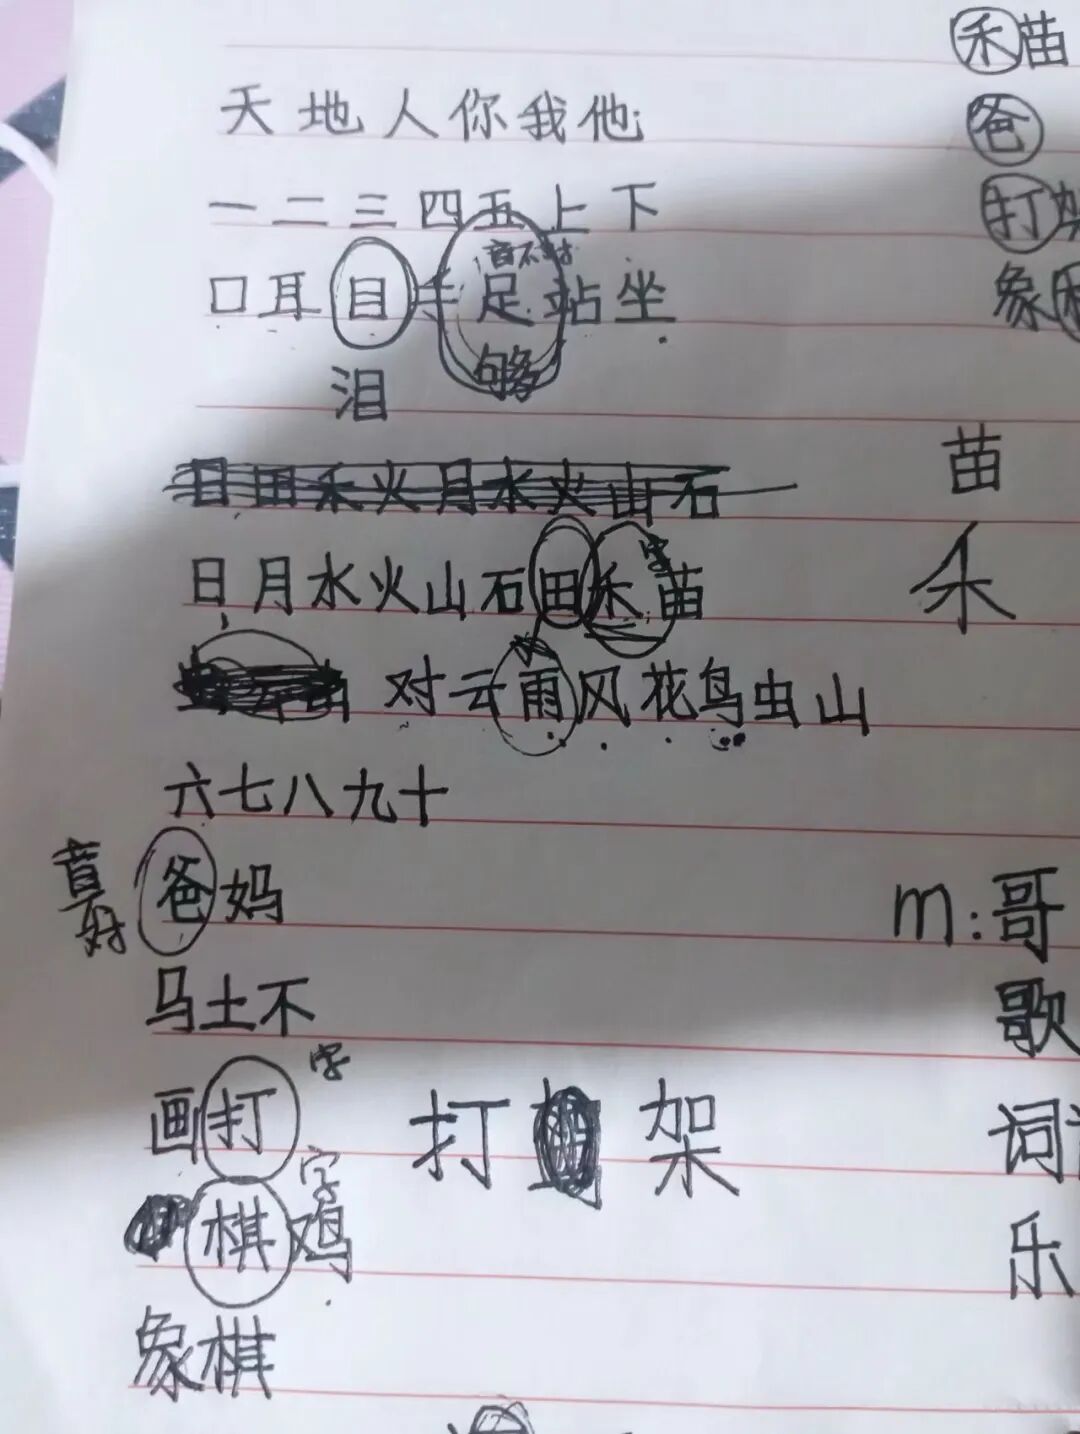 禾苗
天地人你我他
爸
一二三四五上下
打架
口耳目手足站坐
象
泪 够
苗
日田禾火月水火山石
日月水火山石田禾苗
字
禾
对云雨风花鸟虫山
六七八九十
爸妈
m:哥
马土不
歌
字
画打 打 架
词
字
棋鸡
乐
象棋